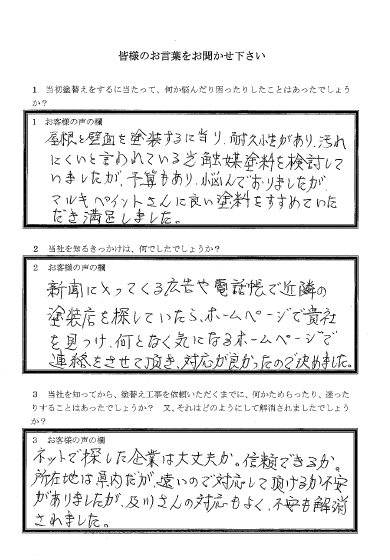 皆様のお言葉をお聞かせ下さい
1 当初塗替えをするに当たって、何か悩んだり困ったりしたことはあったでしょう
か?
1 お客様の声の欄
屋根と壁面を塗装するに当り、耐久性があり、汚れ
にくいと言われている光触媒塗料を検討して
いましたが、予算もあり、悩んでおりましたが
マルキペイントさんに良い塗料をすすめていた
だき満足しました。
2 当社を知るきっかけは、何でしたでしょうか?
2 お客様の声の欄
新聞に入ってくる広告や電話帳で近隣の
塗装店を探していたら、ホームページで貴社
を見つけ、何となく気になるホームページで
連絡をさせて頂き、対応が良かったので決めました。
3 当社を知ってから、塗替え工事を依頼いただくまでに、何かためらったり、迷った
りすることはあったでしょうか? 又、それはどのようにして解消されましたでしょう
か?
3 お客様の声の欄
ネットで探した企業は大丈夫か。信頼できるか。
所在地は県内だが、遠いので対応して頂けるか不安
がありましたが、及川さんの対応もよく、不安も解消
されました。